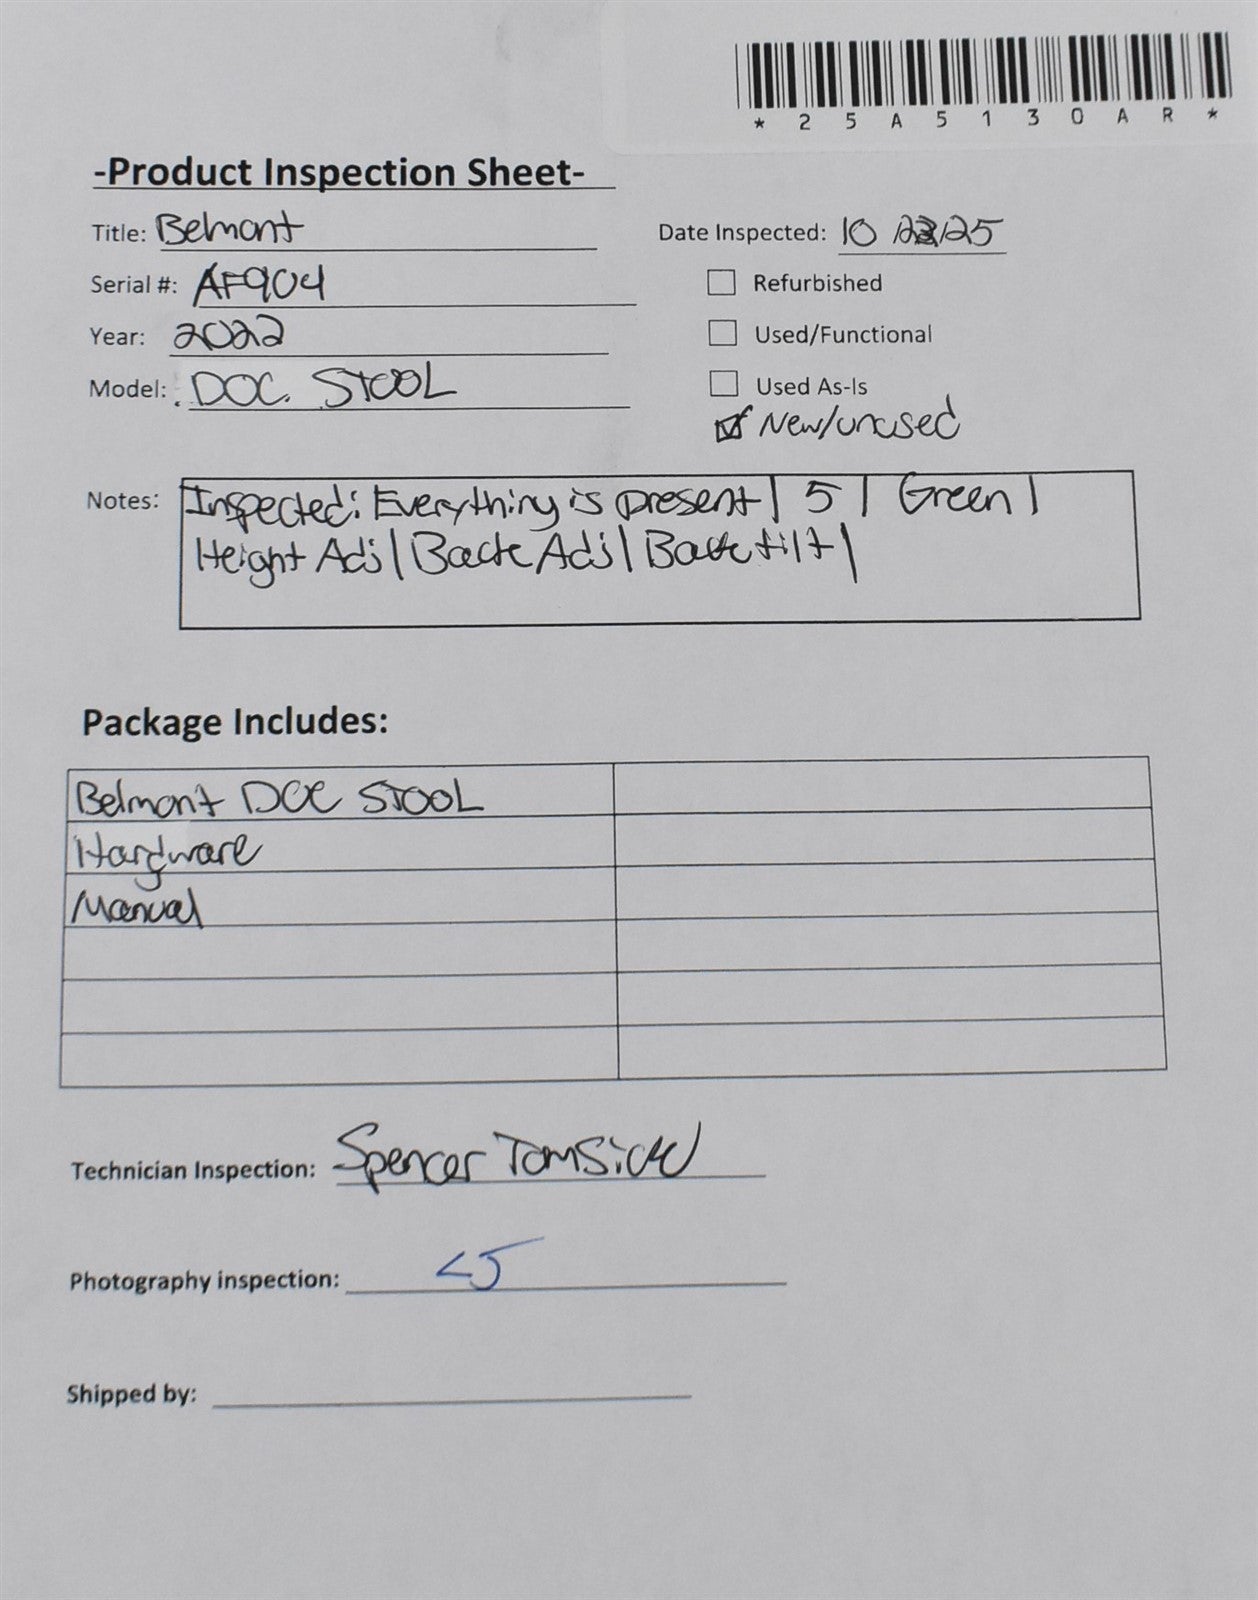 * 2 5 A 5 1 3 0 A R *
-Product Inspection Sheet-
Title: Belmont
Date Inspected: 10 /25
Serial #: AF904
Refurbished
Year: 2022
Used/Functional
Model: DOC. STOOL
Used As-Is
New/unused
Notes: Inspected: Everything is present | 5 | Green |
Height Adj | Back Adj | Back tilt |
Package Includes:
Belmont DOC STOOL
Hardware
Manual
Technician Inspection: Spencer
Photography inspection:
Shipped by: